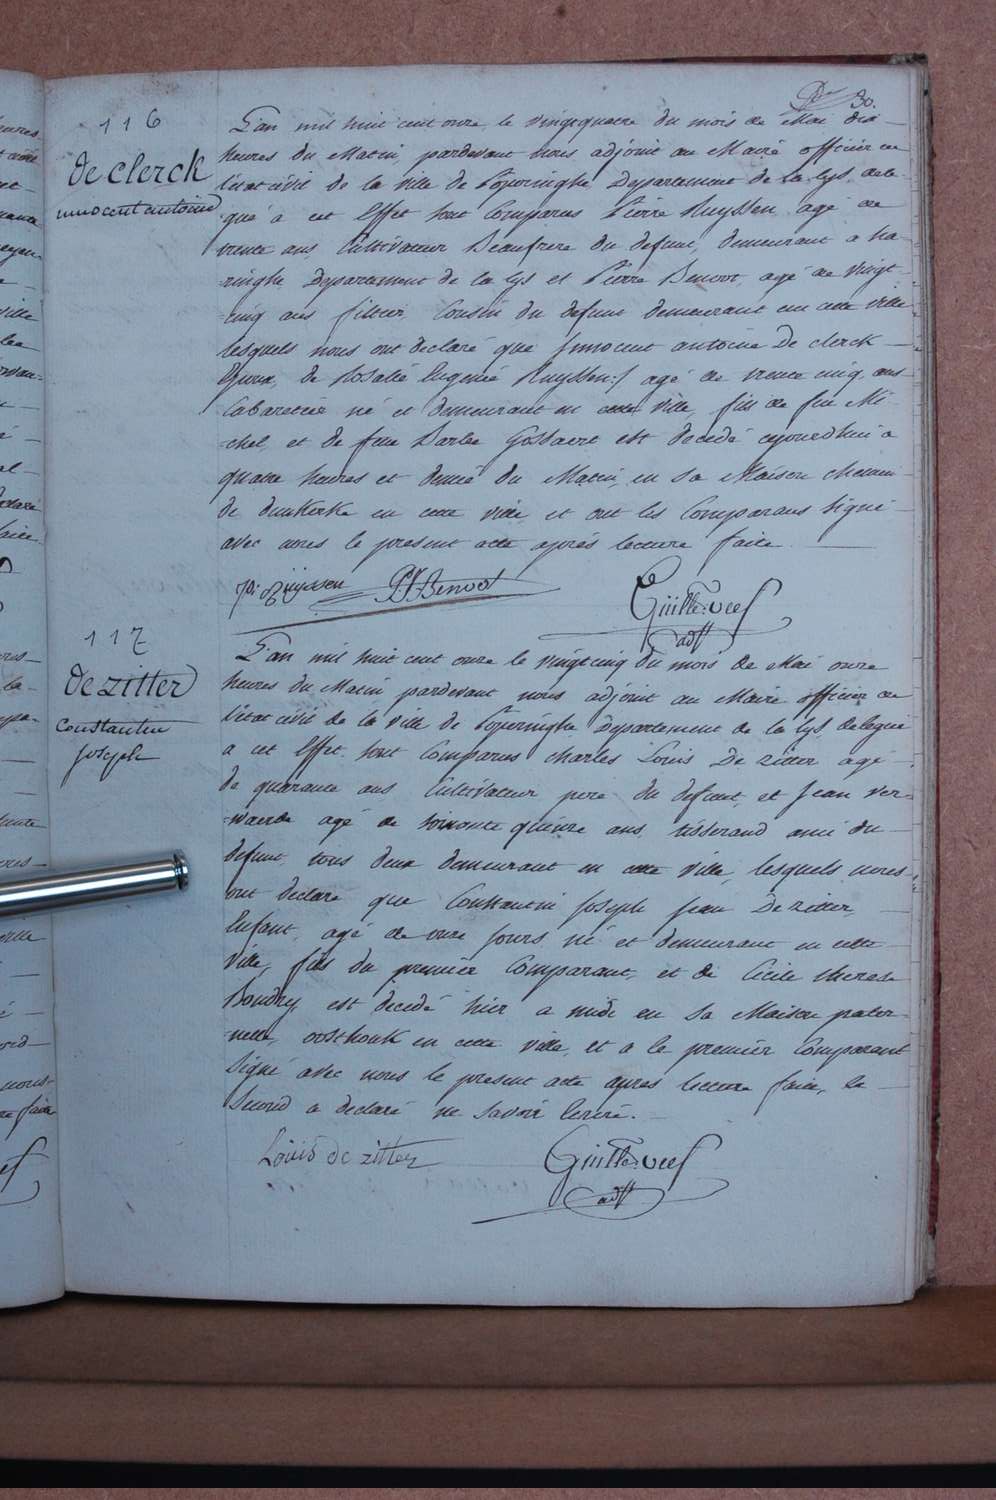 30.
116
de clerck
innocent antoine
L'an mil huit cent onze, le vingtquatre du mois de Mai dix
heures du Matin, pardevant nous adjoint au Maire officier de
l'état civil de la ville de Poperinghe Departement de la Lys, dele-
-gué a cet Effet sont Comparus Pierre Ruyssen, agé de
trente ans Cultivateur Beaufrere du defunt, demeurant a Ha-
-ringhe departement de la Lys et Pierre Benoot, agé de vingt-
-cinq ans filtier, Cousin du defunt demeurant en cette ville
lesquels nous ont declaré que Innocent antoine De Clerck
Epoux, de Rosalie Eugenie Ruyssen :/ agé de trente cinq ans
Cabaretier né et demeurant en cette ville, fils de feu Mi-
-chel, et de feue Barbe Gossaert est decedé cejourd'hui a
quatre heures et demie du Matin, en sa Maison chemin
de dunkerke en cette ville et ont les Comparans signé
avec nous le present acte aprés lecture faite
Pr Ruyssen P. F. Benoot Guille: Veef
adjt
117
de zitter
Constantin
joseph
L'an mil huit cent onze le vingtcinq du mois de Mai onze
heures du Matin pardevant nous adjoint au Maire officier de
l'état civil de la Ville de Poperinghe Departement de la Lys delegué
a cet Effet sont Comparus charles Louis De Zitter agé
de quarante ans Cultivateur pere du defunt, et Jean Ver-
-waerde agé de soixante quinze ans, tisserand ami du
defunt, tous deux demeurant en cette ville, lesquels nous
ont declaré que Constantin Joseph Jean De Zitter,
Enfant, agé de onze jours, né et demeurant en cette
Ville, fils du premier Comparant, et de Cécile therese
Boudry, est decedé hier a midi en sa Maison pater-
-nelle, oosthouk en cette ville, et a le premier Comparant
signé avec nous le present acte apres lecture faite, le
second a declaré ne savoir Ecrire.
Louis de zitter Guille: Veef
adjt